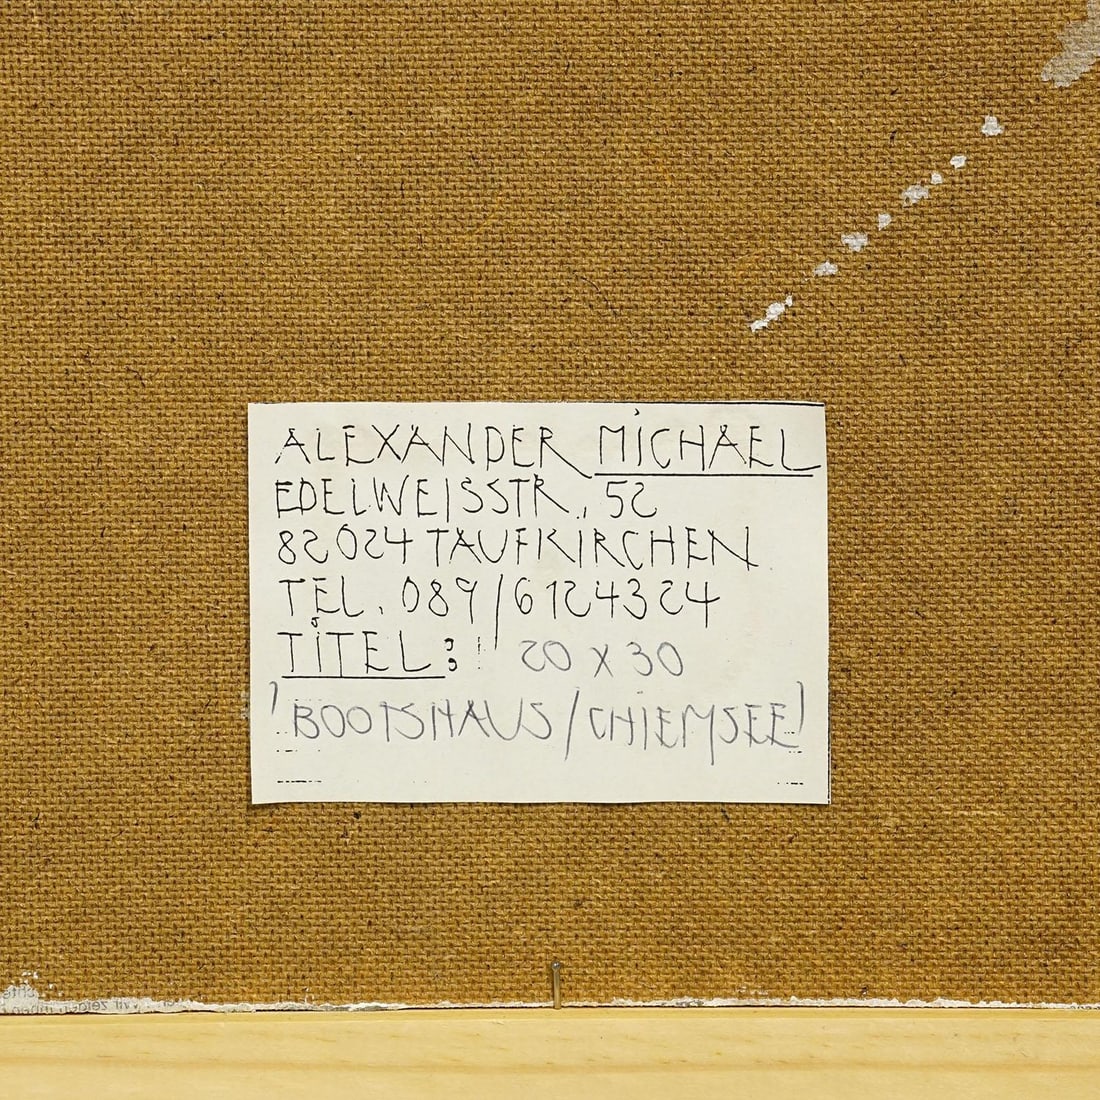 ALEXANDER MICHAEL
EDELWEISSSTR. 52
82024 TAUFKIRCHEN
TEL. 089/6124324
TITEL: 20 x 30
'BOOTSHAUS/CHIEMSEE'